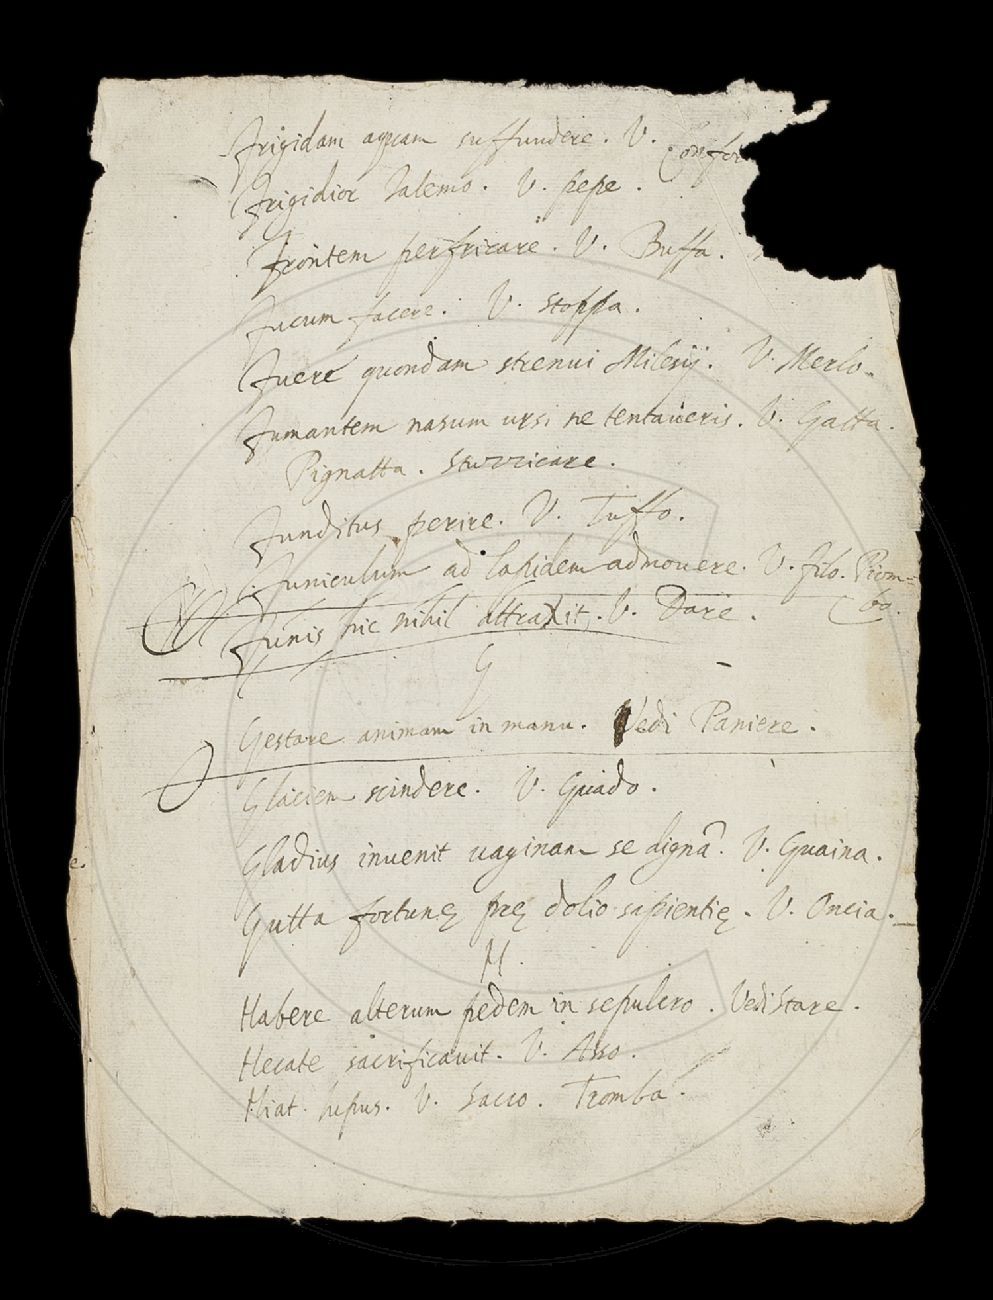 Frigidam aquam suffundere. V. Confor
Frigidior Ialemo. V. pepe.
Frontem perfricare. V. Buffa.
Fucum facere. V. Stoppa.
Fuere quondam strenui Milesij. V. Merlo.
Fumantem nasum ursi ne tentaueris. V. Gatta.
Pignatta. Stuzzicare.
Funditus perire. V. Tuffo.
Funiculum ad lapidem admouere. V. filo. Piom=
bo.
Funis hic nihil attraxit. V. Dare.
G
Gestare animam in manu. Vedi Paniere.
Glaciem scindere. V. Guado.
Gladius inuenit uaginam se dignā. V. Guaina.
Gutta fortunę prę dolio sapientię. V. Oncia.
H.
Habere alterum pedem in sepulcro. Vedi Stare.
Hecate sacrificauit. V. Asso.
Hiat lupus. V. Sacco. Tromba.
e.